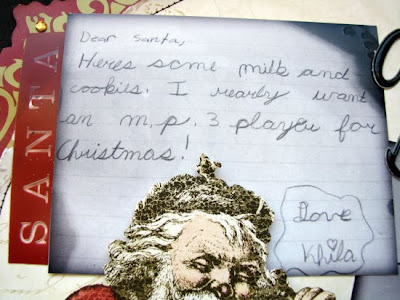 SANTA
Dear Santa,
Heres some milk and
cookies. I rearly want
an m.p.3 player for
Christmas!
Love
Khila